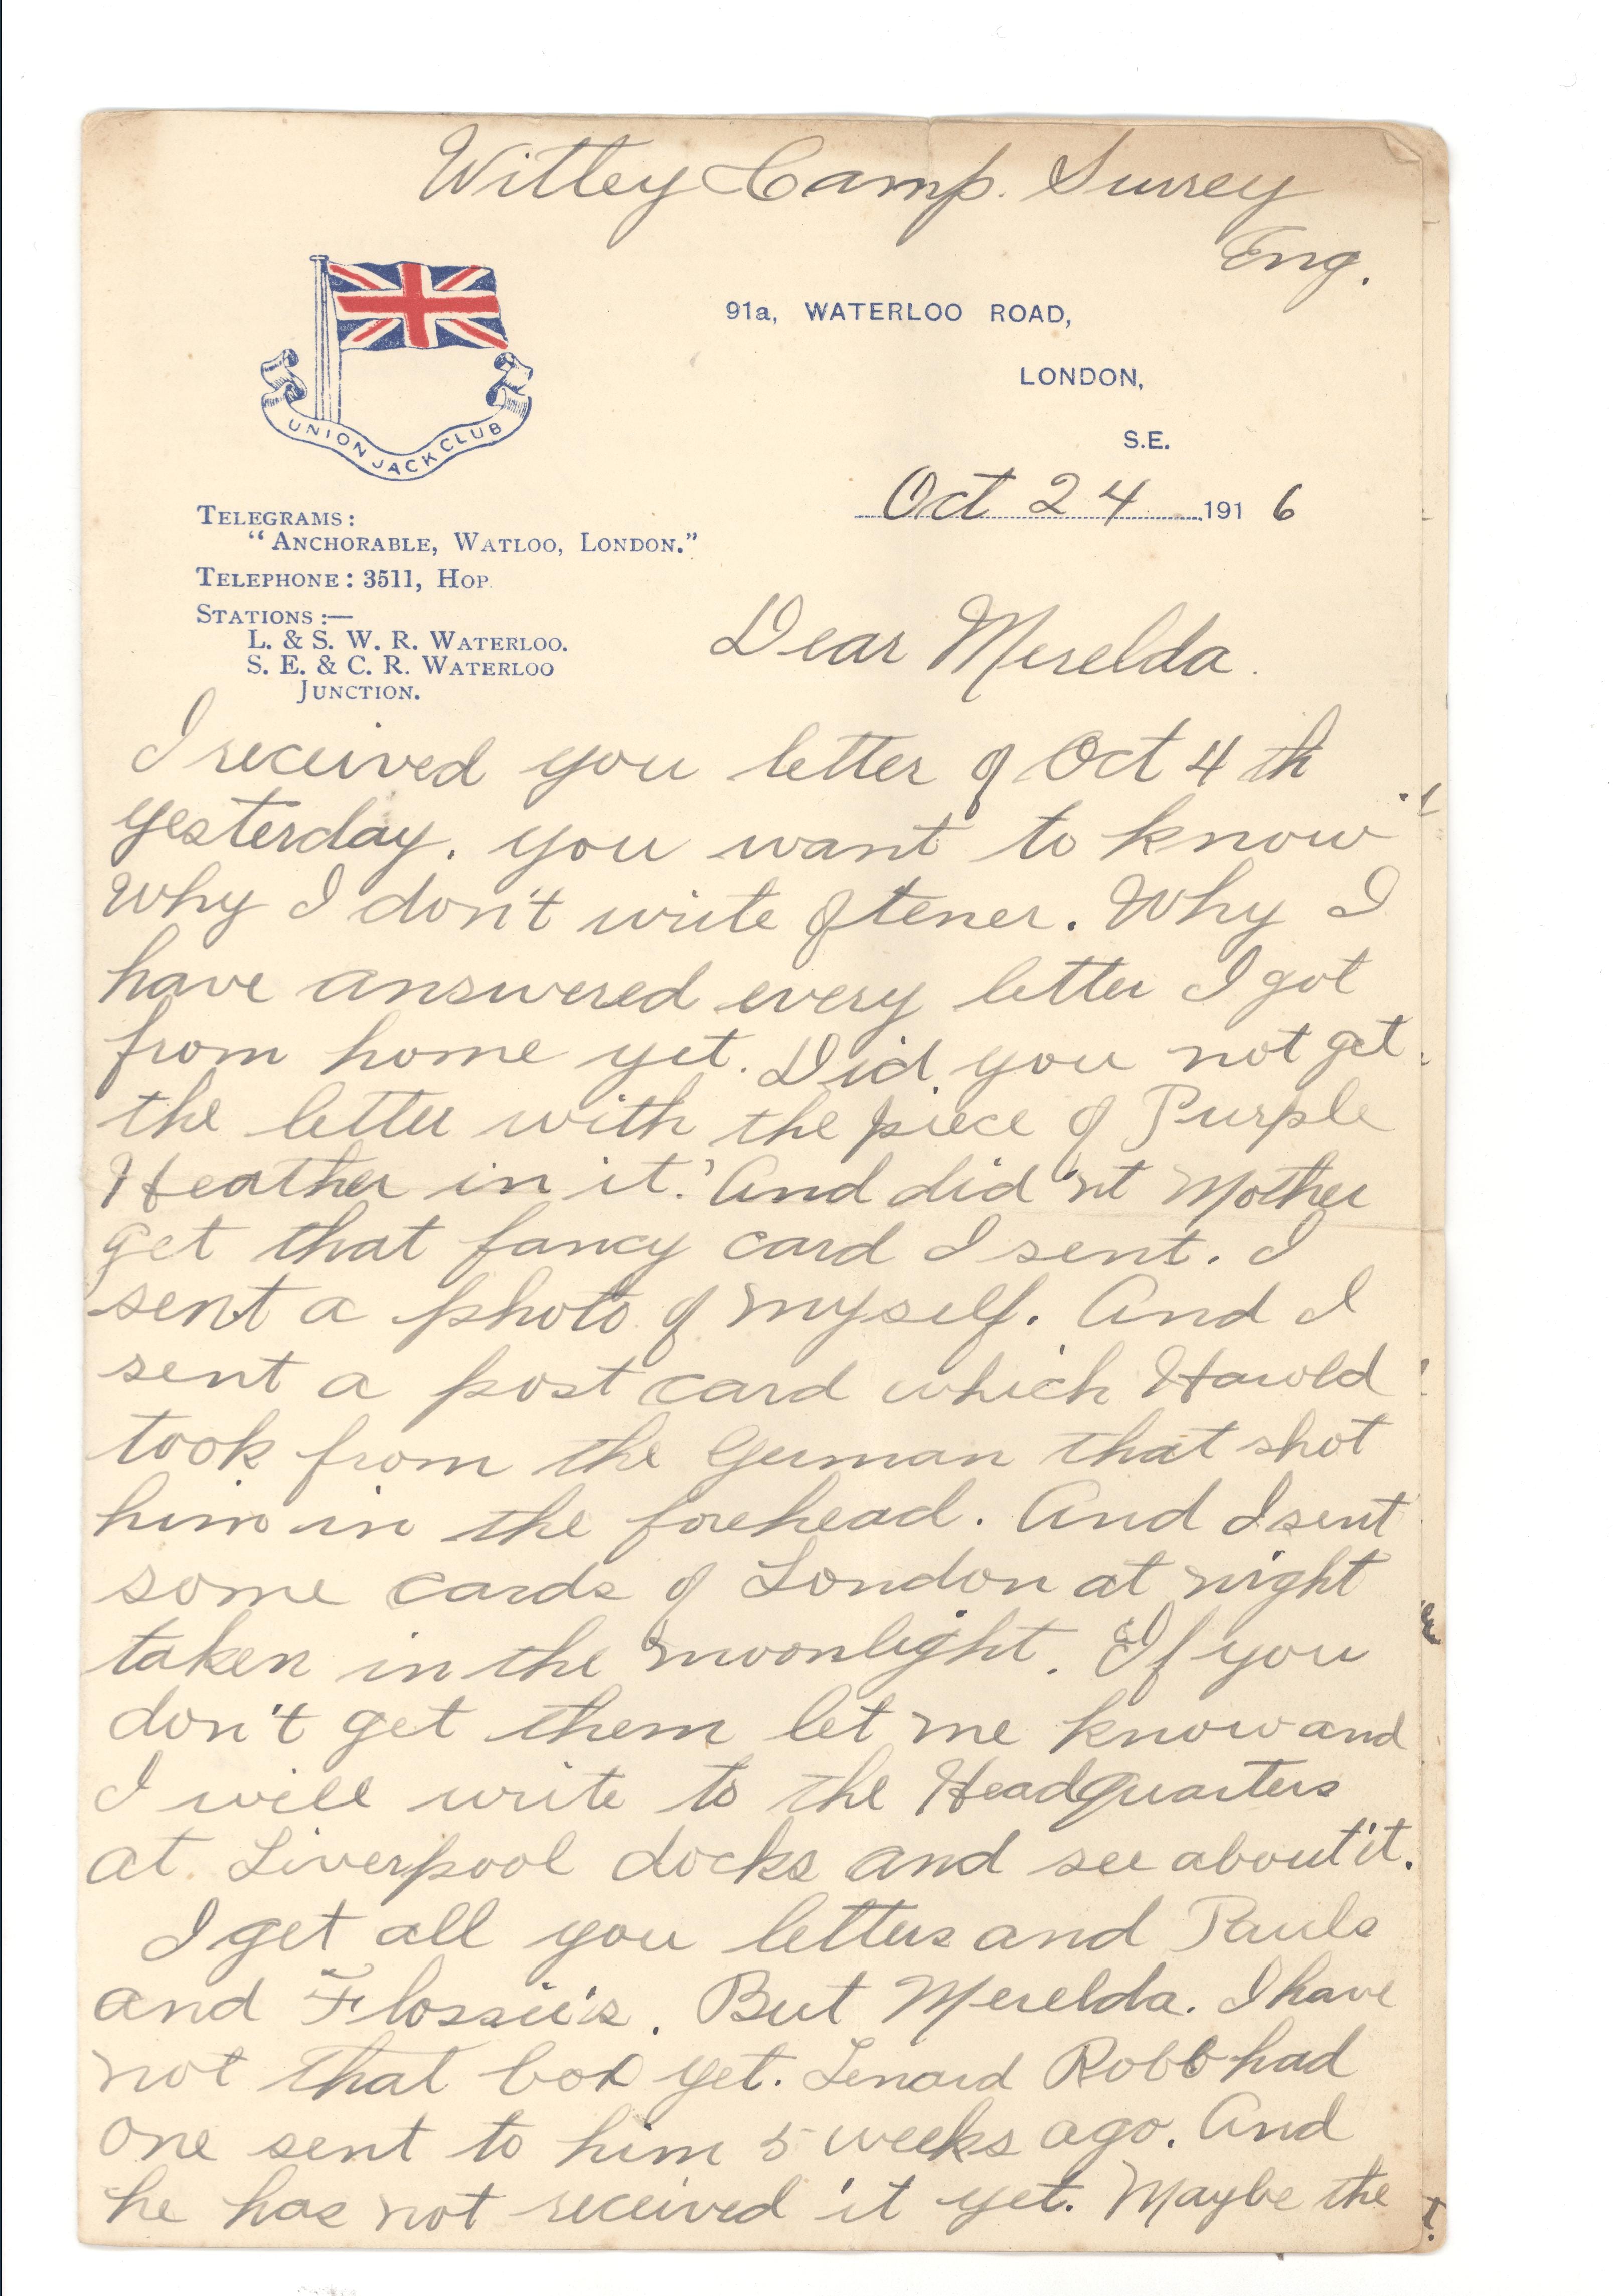 Witley Camp. Surrey
Eng.
UNION JACK CLUB
91a, WATERLOO ROAD,
LONDON,
S.E.
Oct 24 1916
TELEGRAMS:
"ANCHORABLE, WATLOO, LONDON."
TELEPHONE: 3511, HOP.
STATIONS:—
L. & S. W. R. WATERLOO.
S. E. & C. R. WATERLOO
JUNCTION.
Dear Merelda.
I received you letter of Oct 4th
yesterday. you want to know
why I don't write oftener. Why I
have answered every letter I got
from home yet. Did you not get
the letter with the piece of Purple
Heather in it? And did'nt Mother
get that fancy card I sent. I
sent a photo of myself. And I
sent a post card which Harold
took from the German that shot
him in the forehead. And I sent
some cards of London at night
taken in the moonlight. If you
don't get them let me know and
I will write to the Headquarters
at Liverpool docks and see about it.
I get all you letters and Pauls
and Flossie's. But Merelda. I have
not that box yet. Lenard Robb had
one sent to him 5 weeks ago. And
he has not received it yet. Maybe the